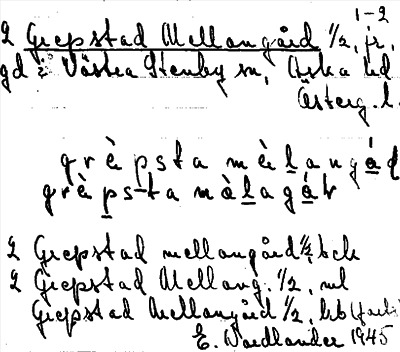 1-2
Grepstad Mellangård 1/2, jr,
gd i Västra Stenby sn, Aska hd
Österg. l.
grè̀psta mèlangád
grèpsta màlagár
Grepstad mellangård 1/2, bek
Grepstad Mellang. 1/2, ml
Grepstad Mellangård 1/2, hb (fasti)
E. Nordlander 1945